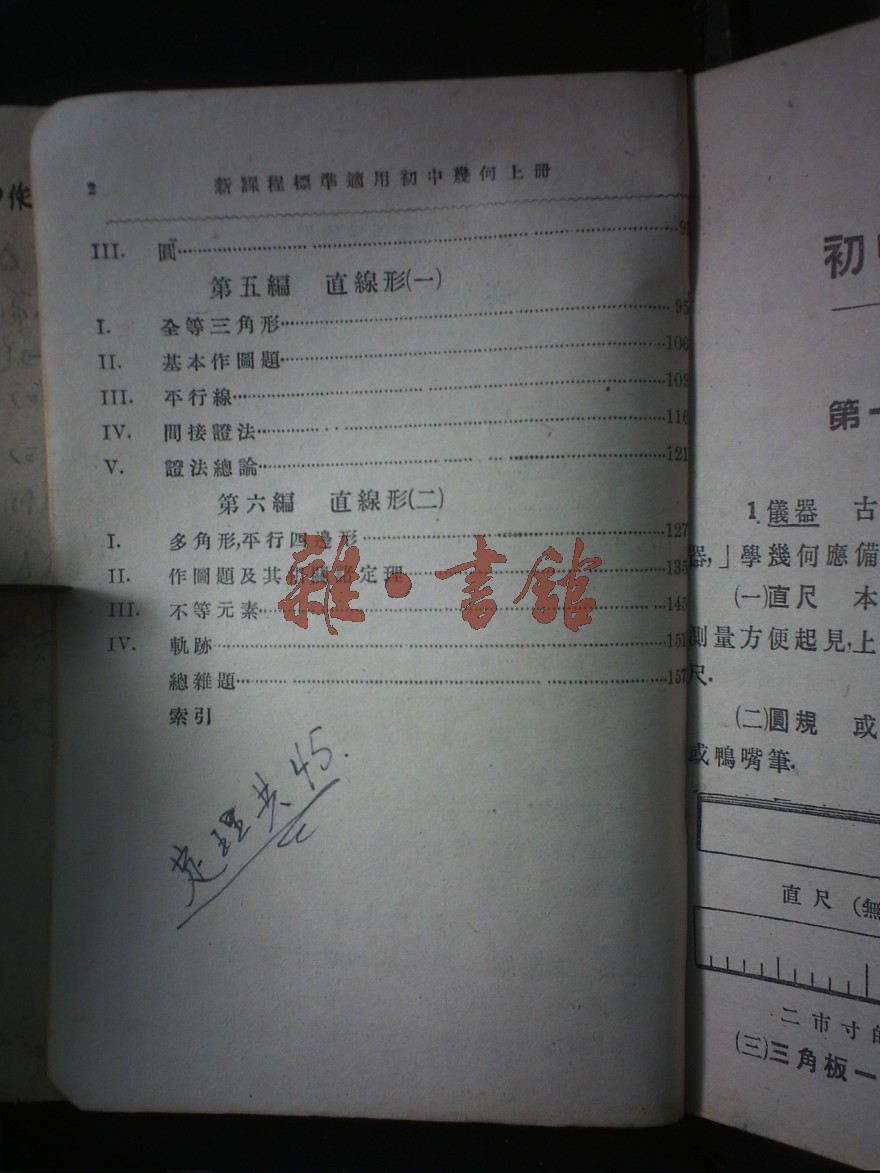 2 新課程標準適用初中幾何上冊
III. 圓
第五編 直線形(一)
I. 全等三角形 95
II. 基本作圖題 106
III. 平行線 109
IV. 間接證法 116
V. 證法總論 121
第六編 直線形(二)
I. 多角形,平行四邊形 127
II. 作圖題及其 定理 135
III. 不等元素 145
IV. 軌跡 151
總雜題 157
索引
定理共45.
雅·書館
初中
第一
1. 儀器 古
器,」學幾何應備
(一)直尺 本
測量方便起見,上
尺.
(二)圓規 或
或鴨嘴筆.
直尺 (無
二市寸的
(三)三角板一